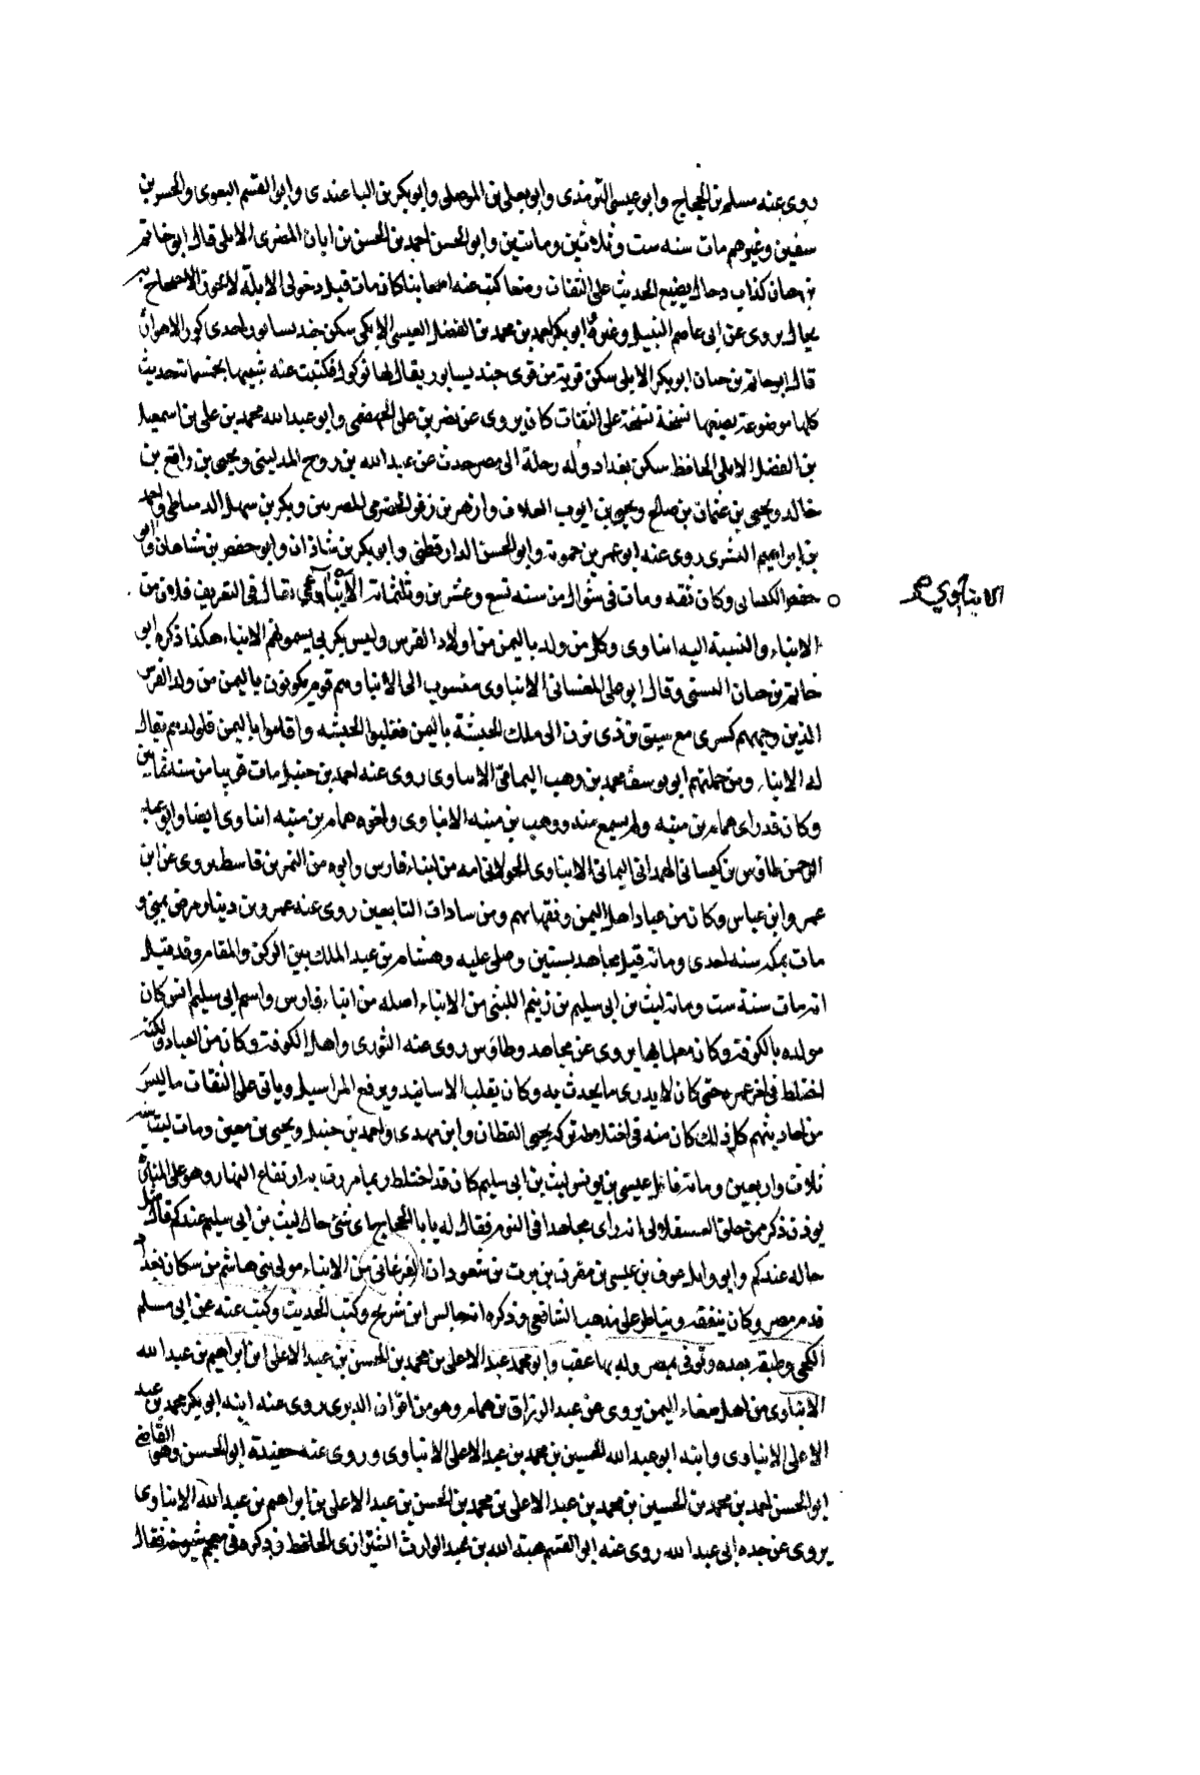 روى عنه مسلم بن الحجاج وابو عيسى الترمذى وابو يعلى بن الموصلى وابو بكر بن الباغندى وابو القسم البغوى والحسن بن
سفين وغيرهم مات سنه ست وثلاثين وماتين وابو الحسن احمد بن الحسن بن ابان المضرى الابلى قال ابو حاتم
بن حبان كذاب دجال يضع الحديث على الثقات وضعا كتب عنه اصحابنا كان مات قبل دخولى الابلة لا يجوز الاحتجاج به
بحال يروى عن ابى عاصم النبيل وغيره ابو بكر احمد بن محمد بن الفضل القيسى الابلى سكن جنديسابور احدى كور الاهواز
قال ابو حاتم بن حبان ابو بكر الابلى سكن قرية من قرى جنديسابور يقال لها نوكول فكتبت عنه شبيها بخمسمائة حديث
كلها موضوعة يضعها نسخة نسخة على الثقات كان يروى عن نصر بن على الجهضمى وابو عبد الله محمد بن على بن اسمعيل
بن الفضل الابلى الحافظ سكن بغداد وله رحلة الى مصر حدث عن عبد الله بن روح المدايني ويحيى بن نافع بن
خالد ويحيى بن عثمان بن صالح ويحيى بن ايوب العلاف وازهر بن زفر الحضرمى المصريين وبكر بن سهل الدمياطى واحمد
بن ابراهيم البسرى روى عنه ابو عمر بن حيوية وابو الحسن الدارقطنى وابو بكر بن شاذان وابو حفص بن شاهان وابو
حفص الكتانى وكان ثقه ومات فى شوال من سنه تسع وعشرين وثلثمائة الأبناوى يقال فى التعريف فلان من
الابناوي
الابناء والنسبة اليه ابناوى وكل من ولد باليمن من اولاد الفرس وليس بعربى يسمونهم الابناء هكذا ذكره ابو
حاتم بن حبان البستى وقال ابو على الغسانى الابناوى منسوب الى الابنا وهم قوم يكونون باليمن من ولد الفرس
الذين وجههم كسرى مع سيف بن ذى يزن الى ملك الحبشة باليمن فغلبوا الحبشه واقاموا باليمن فولدهم يقال
له الابناء ومن جملتهم ابو يوسف محمد بن وهب اليمامى الابناوى روى عنه احمد بن حنبل مات قريبا من سنه ثمانين
وكان قد راى همام بن منبه ولم يسمع منه ووهب بن منبه الابناوى واخوه همام بن منبه ابناوى ايضا وابو عبد
الرحمن طاوس بن كيسان الهمدانى اليمانى الابناوى الخولانى امه من ابناء فارس وابوه من النمر بن قاسط يروى عن ابن
عمر وابن عباس وكان من عباد اهل اليمن وفقهائهم ومن سادات التابعين روى عنه عمرو بن دينار مرض بمنى و
مات بمكه سنه احدى ومائة قبل مجاهد بسنتين وصلى عليه هشام بن عبد الملك بين الركن والمقام وقد قيل
انه مات سنة ست ومائة ليث بن ابى سليم بن زنيم الليثى من الابناء اصله من ابناء فارس واسم ابى سليم انس كان
مولده بالكوفة وكان معلما بها يروى عن مجاهد وطاوس روى عنه الثورى واهل الكوفة وكان من العباد ولكنه
اختلط فى اخر عمره حتى كان لا يدرى ما يحدث به وكان يقلب الاسانيد ويرفع المراسيل وياتى على الثقات ما ليس
من احاديثهم كل ذلك كان منه فى اختلاطه تركه يحيى القطان وابن مهدى واحمد بن حنبل ويحيى بن معين ومات ليث سنه
ثلاث واربعين ومائة قال عيسى بن يونس ليث بن ابى سليم كان قد اختلط ربما مررت به ارتفاع النهار وهو على المنارة
يوذن ذكر مؤمل العسقلانى انه راى مجاهدا فى النوم فقال له يا ابا الحجاج اى شئ حال ليث بن ابى سليم عندكم قال مثل
حاله عندكم وابو وايل عوف بن عيسى بن مقرن بن برت بن شعودان الفرغانى من الابناء مولى بنى هاشم من سكان بغداد
قدم مصر وكان يتفقه ويناظر على مذهب الشافعى وذكر انه جالس ابن شريح وكتب الحديث وكتب عنه عن ابى مسلم
الكجى وطبقه بعده وتوفى بمصر وله بها عقب وابو محمد عبد الاعلى بن محمد بن الحسن بن عبد الاعلى ابن ابراهيم بن عبد الله
الابناوى من اهل صنعاء اليمن يروى عن عبد الرزاق بن همام وهو من اقران الدبرى روى عنه ابنه ابو بكر محمد بن عبد
الاعلى الابناوى وابنه ابو عبد الله الحسين بن محمد بن عبد الاعلى الابناوى وروى عنه حفيدة ابو الحسن وهو القاضى
ابو الحسن احمد بن محمد بن الحسين بن محمد بن عبد الاعلى بن محمد بن الحسن بن عبد الاعلى بن ابراهيم بن عبد الله الابناوى
يروى عن جده ابى عبد الله روى عنه ابو القسم هبة الله بن عبد الوارث الشيرازى الحافظ وذكره فى معجم شيوخه فقال